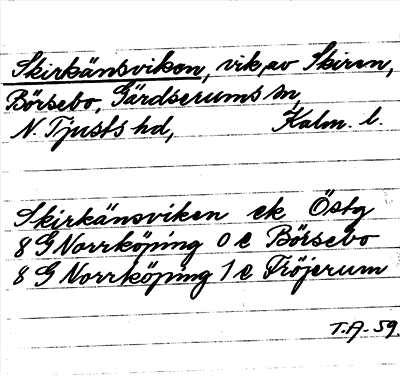 Skirkänsviken, vik av Skiren,
Börsebo, Gärdserums sn,
N. Tjusts hd, Kalm. l.
Skirkänsviken ek Östg
8 G Norrköping 0 e Börsebo
8 G Norrköping 1 e Fröjerum
T.A. -59.